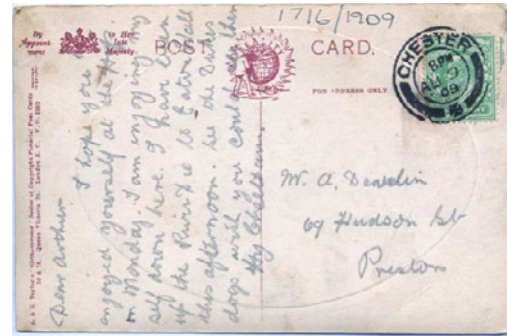 1716/1909
By Appoint-ment
to Her late Majesty.
POST CARD.
FOR ADDRESS ONLY.
CHESTER
8 PM
09
Dear Arthur
I hope you
enjoyed yourself at the
on Monday. I am enjoying my
self down here. I have been
up the River Dee to Eaton Hall
this afternoon.
dogs wish you could see them
Mr. A.
69 Hudson St
Preston